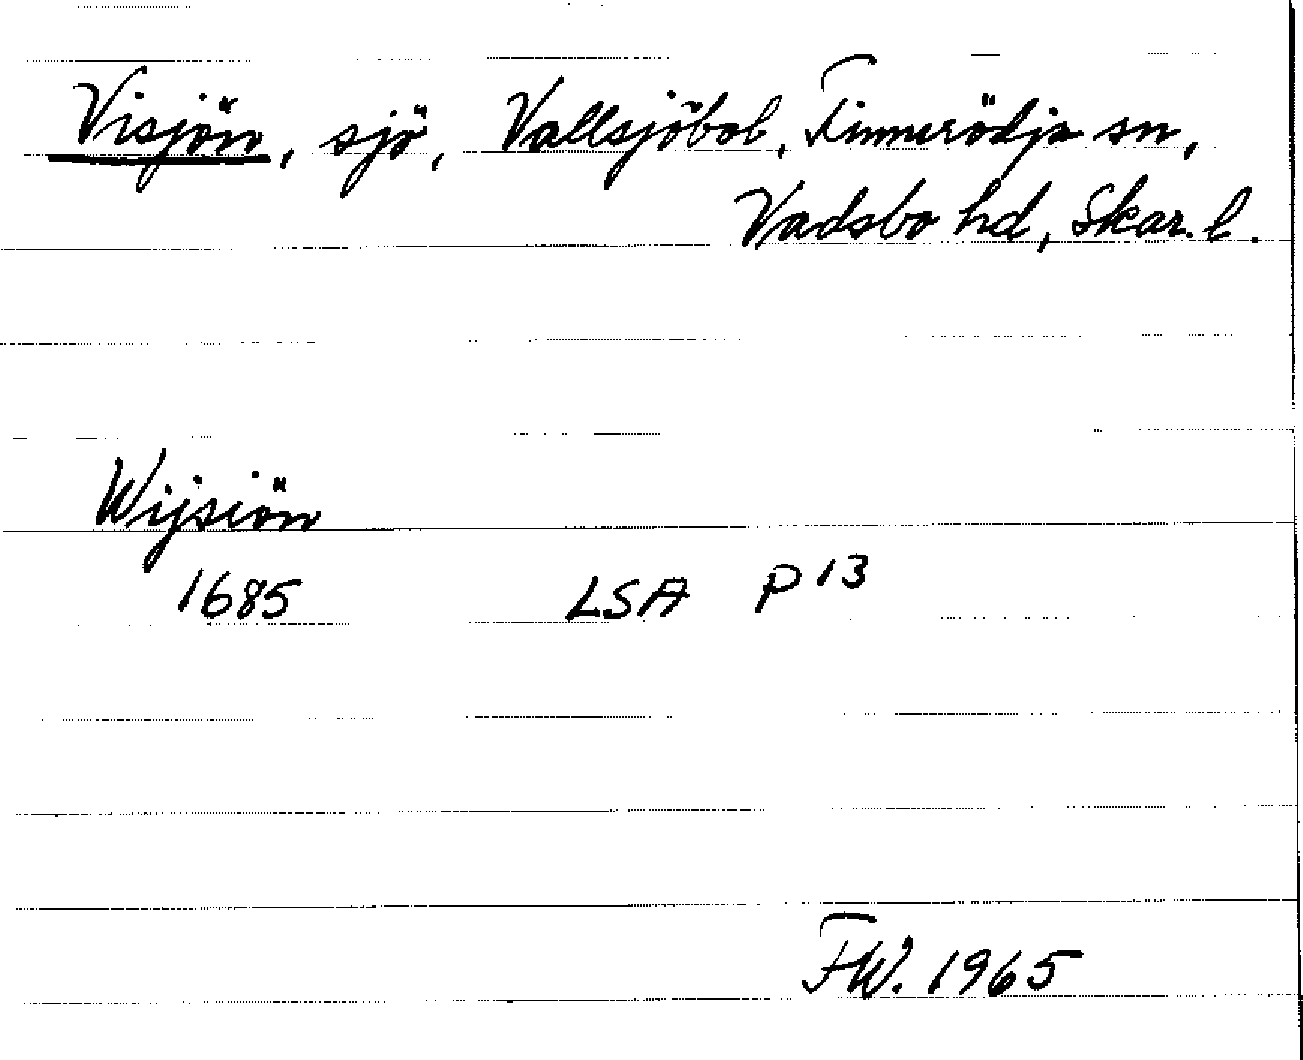 Visjön, sjö, Vallsjöbol, Finnerödja sn,
Vadsbo hd, Skar. l.
Wijsiön
1685 LSA P 13
F.W. 1965